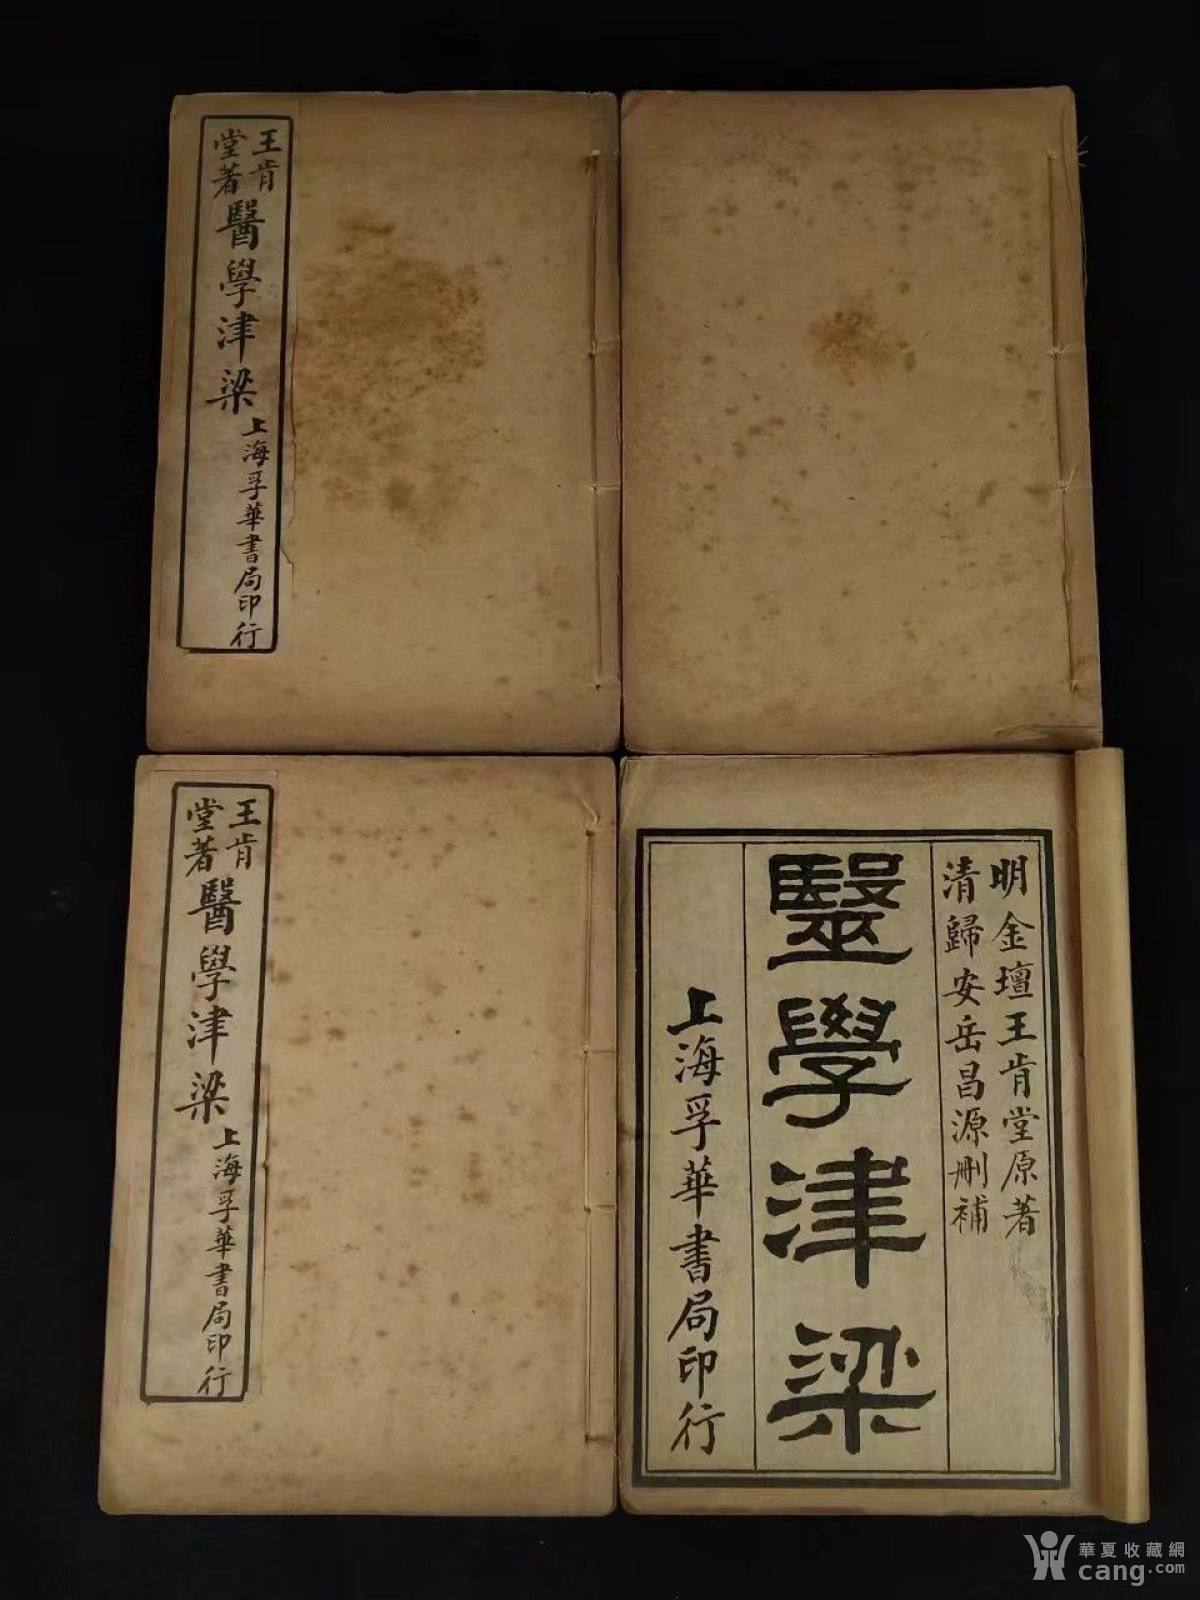 王肯
堂著
醫學津梁
上海孚華書局印行
王肯
堂著
醫學津梁
上海孚華書局印行
明金壇王肯堂原著
清歸安岳昌源刪補
毉學津梁
上海孚華書局印行
華夏收藏網
cang.com